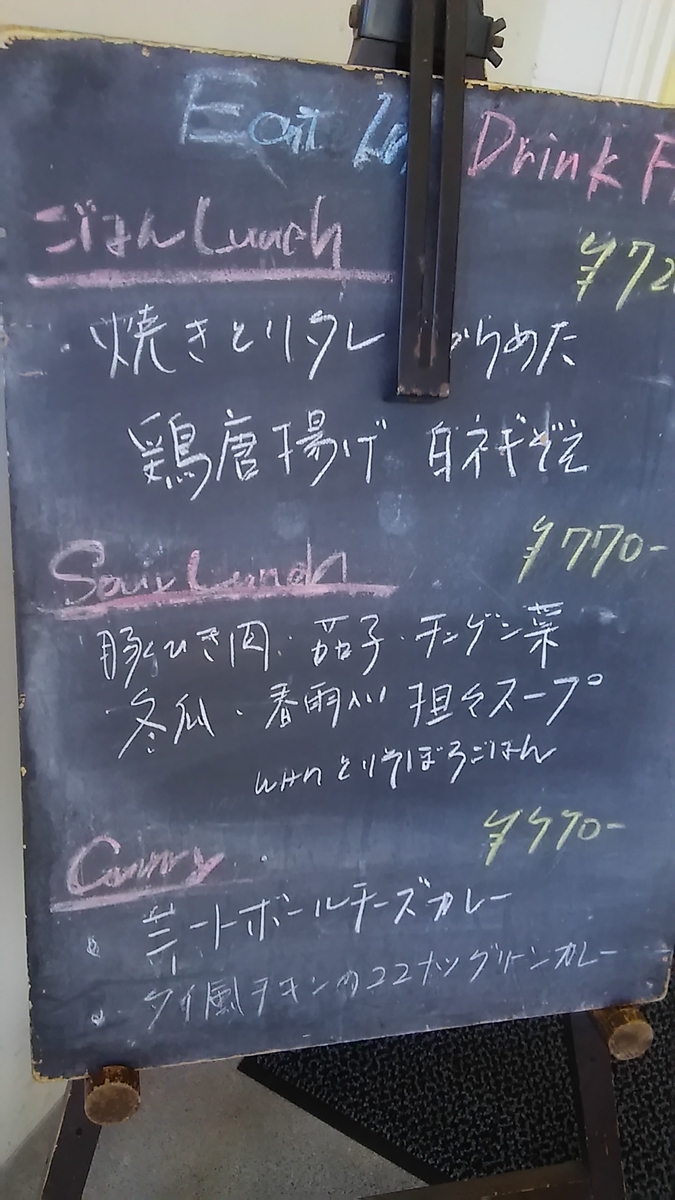 Eat Drink F
ごはん Lunch
¥72
焼きとりタレ からめた
鶏唐揚げ 白ネギぞえ
¥770-
Soup Lunch
豚ひき肉・茄子・チンゲン菜
冬瓜・春雨入り 担々スープ
with とりそぼろごはん
¥770-
Curry
・ミートボールチーズカレー
・タイ風チキンのココナッツグリーンカレー